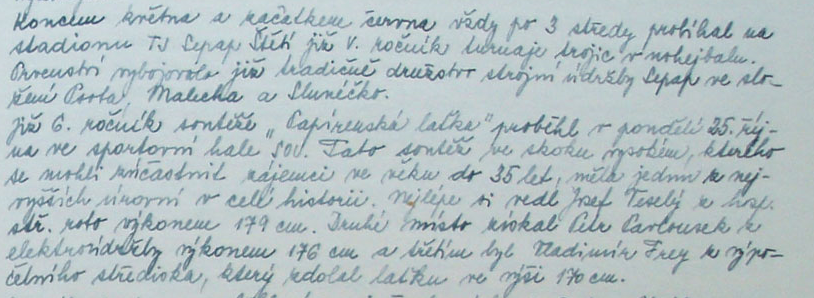 Koncem května a začátkem června vždy po 3 středy probíhal na
stadionu TJ Sepap Štětí již V. ročník turnaje trojic v nohejbalu.
Prvenství vybojovalo již tradičně družstvo strojní údržby Sepap ve slo-
žení Porta, Malecha a Slunéčko.
Již 6. ročník soutěže „Papírenská laťka" proběhl v pondělí 25. říj-
na ve sportovní hale SOU. Tato soutěž ve skoku vysokém, kterého
se mohli zúčastnit zájemci ve věku do 35 let, měla jednu z nej-
vyšších úrovní v celé historii. Nejlépe si vedl Josef Veselý z hosp.
stř. roto výkonem 179 cm. Druhé místo získal Petr Pavlousek z
elektroúdržby výkonem 176 cm a třetím byl Vladimír Frey z výpo-
četního střediska, který zdolal laťku ve výši 170 cm.